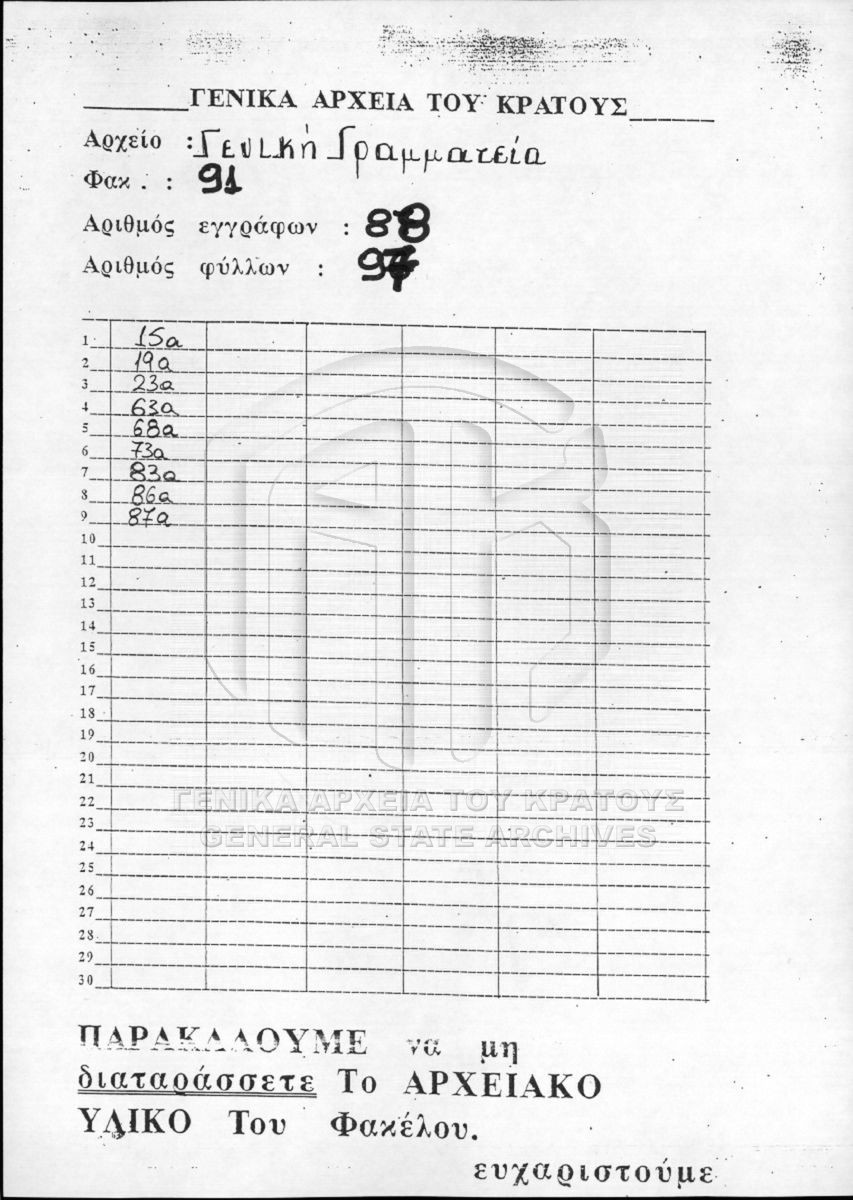 ΓΕΝΙΚΑ ΑΡΧΕΙΑ ΤΟΥ ΚΡΑΤΟΥΣ
Αρχείο : Γενική Γραμματεία
Φακ . : 91
Αριθμός εγγράφων : 88
Αριθμός φύλλων :
1 15α
2 19α
3 23α
4 63α
5 68α
6 73α
7 83α
8 86α
9 87α
10
11
12
13
14
15
16
17
18
19
20
21
22
23
24
25
26
27
28
29
30
ΓΕΝΙΚΑ ΑΡΧΕΙΑ ΤΟΥ ΚΡΑΤΟΥΣ
GENERAL STATE ARCHIVES
ΠΑΡΑΚΑΛΟΥΜΕ να μη
διαταράσσετε Το ΑΡΧΕΙΑΚΟ
ΥΛΙΚΟ Του Φακέλου.
ευχαριστούμε